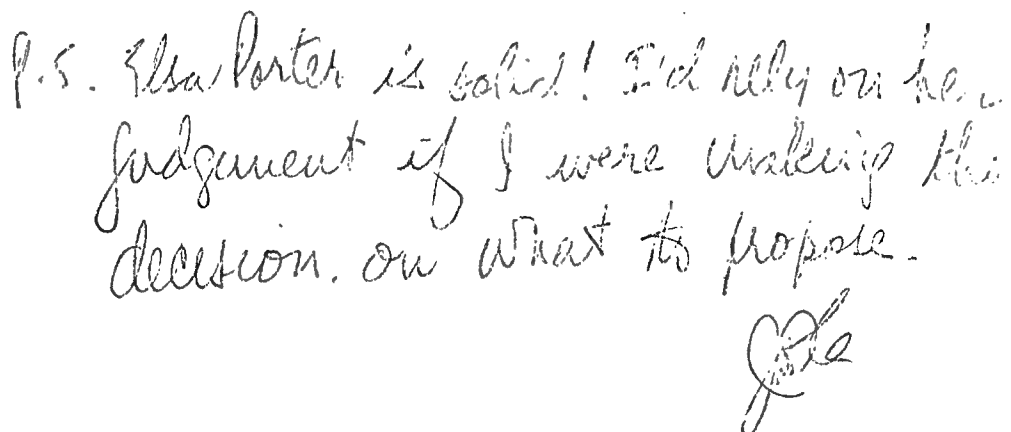 P.S. Elsa Porter is solid! I'd rely on her
judgement if I were making this
decision. on what to propose.